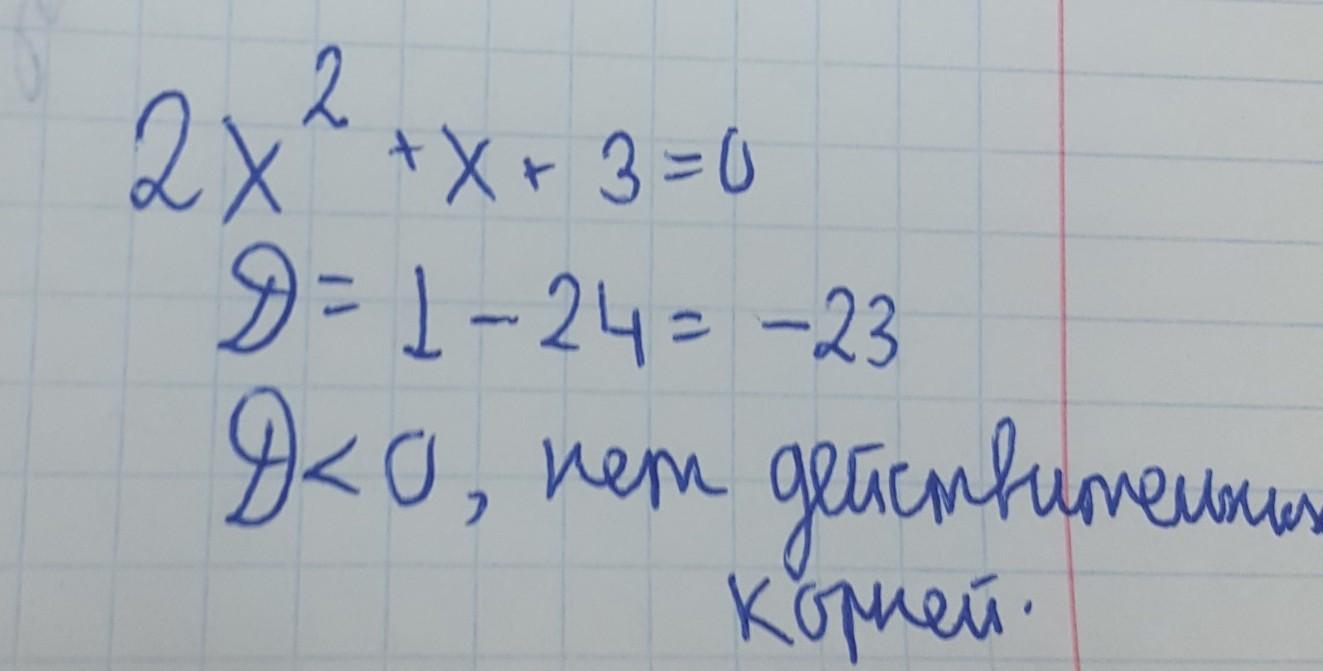 2x² + x + 3 = 0
D = 1 - 24 = -23
D < 0, нет действительных
корней.